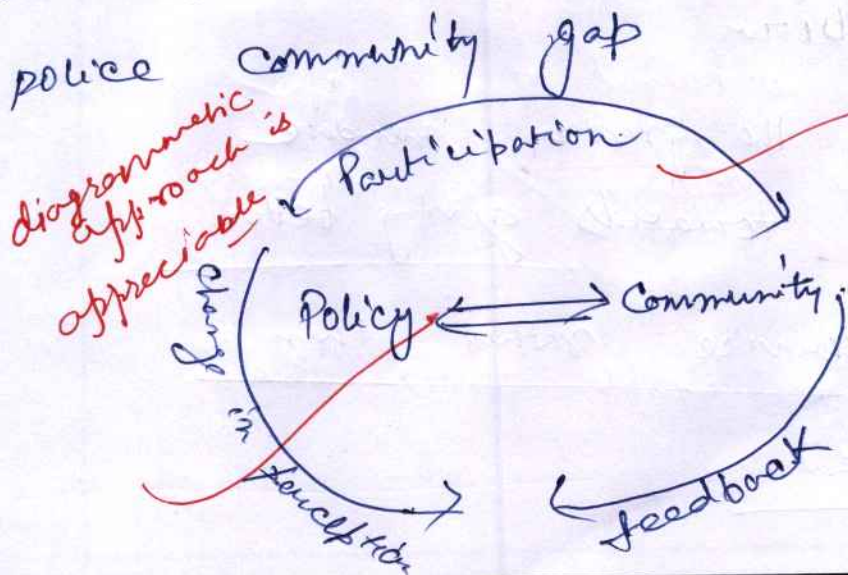 police community gap
diagrammetic
approach is
appreciable
Participation
Policy
Community
change in perception
feedback